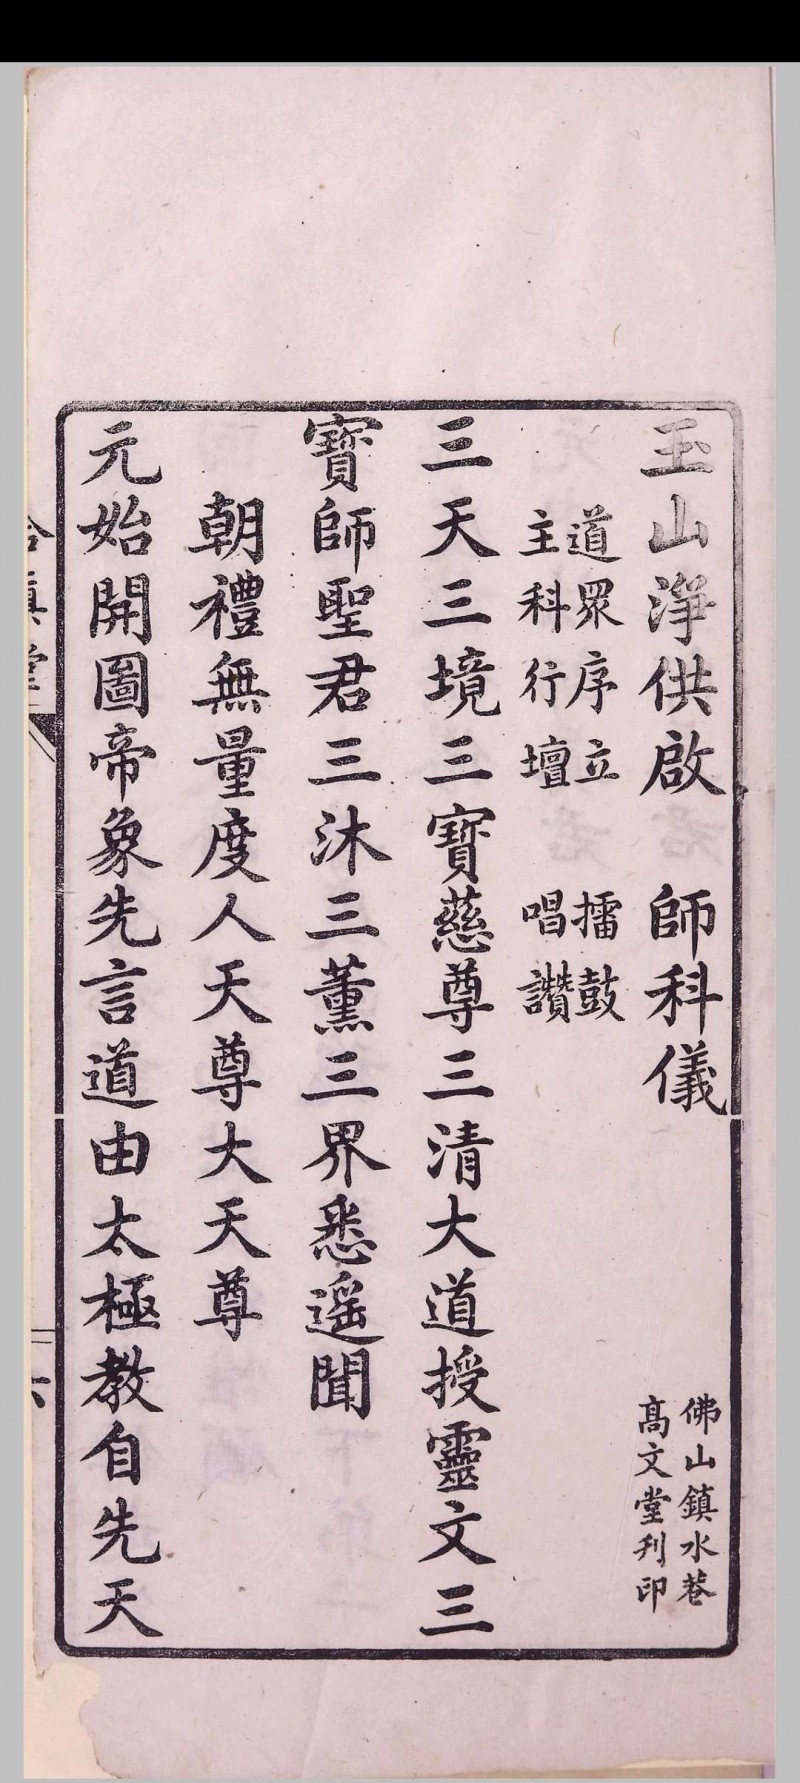 玉山淨供啟　師科儀
佛山鎮水巷
高文堂刋印
道眾序立　擂鼓
主科行壇　唱讚
三天三境三寶慈尊三清大道授靈文三
寶師聖君三沐三薰三界悉遥聞
朝禮無量度人天尊大天尊
元始開圖帝象先言道由太極教自先天